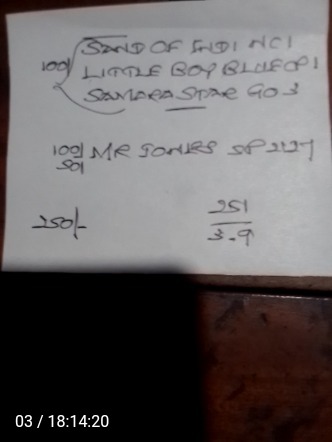 SAND OF INDI NC1
100/ LITTLE BOY BLUE OP1
SAMARA STAR GO 3
100/ MR JONES SP 2127
50/
250/-
251
3.9
03 / 18:14:20